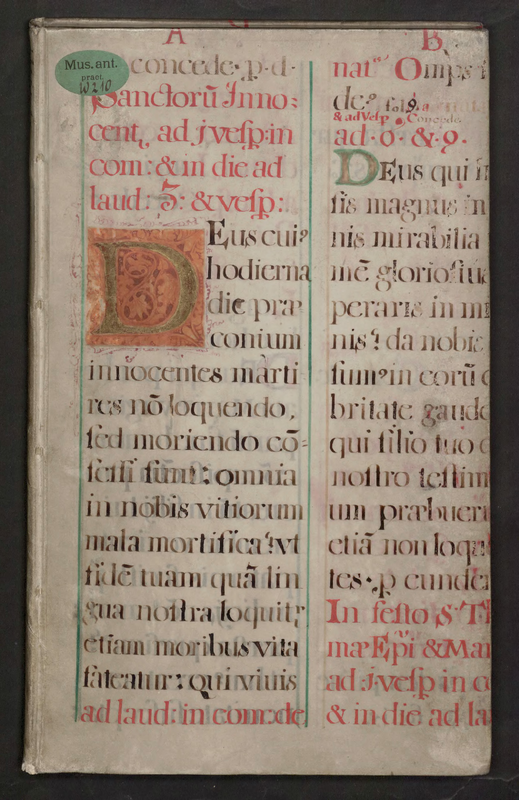 A
Mus. ant.
pract.
W 210
concede. p. d.
Sanctorū Inno:
cent, ad j vesp: in
com: & in die ad
laud: & vesp:
DEus cui?
hodierna
die præ
conium
innocentes marti
res nō loquendo,
sed moriendo cō=
fessi sunt: omnia
in nobis vitiorum
mala mortifica: vt
fidē tuam quā lin
gua nostra loquit?
etiam moribus vita
fateatur: qui viuis
ad laud: in com: de
B
nat Omps
de? fol 9. a
& ad Vesp Concede
ad. o. & 9.
DEus qui
tis magnus in
nis mirabilia
mē gloriosiu
peraris in
nis: da nobis
sum? in eorū
britate gaude
qui filio tuo
nostro testim
um præbuer
etiā non loqu
tes. p eunde
In festo S. T
mæ Epi & Mar
ad j vesp in
& in die ad la